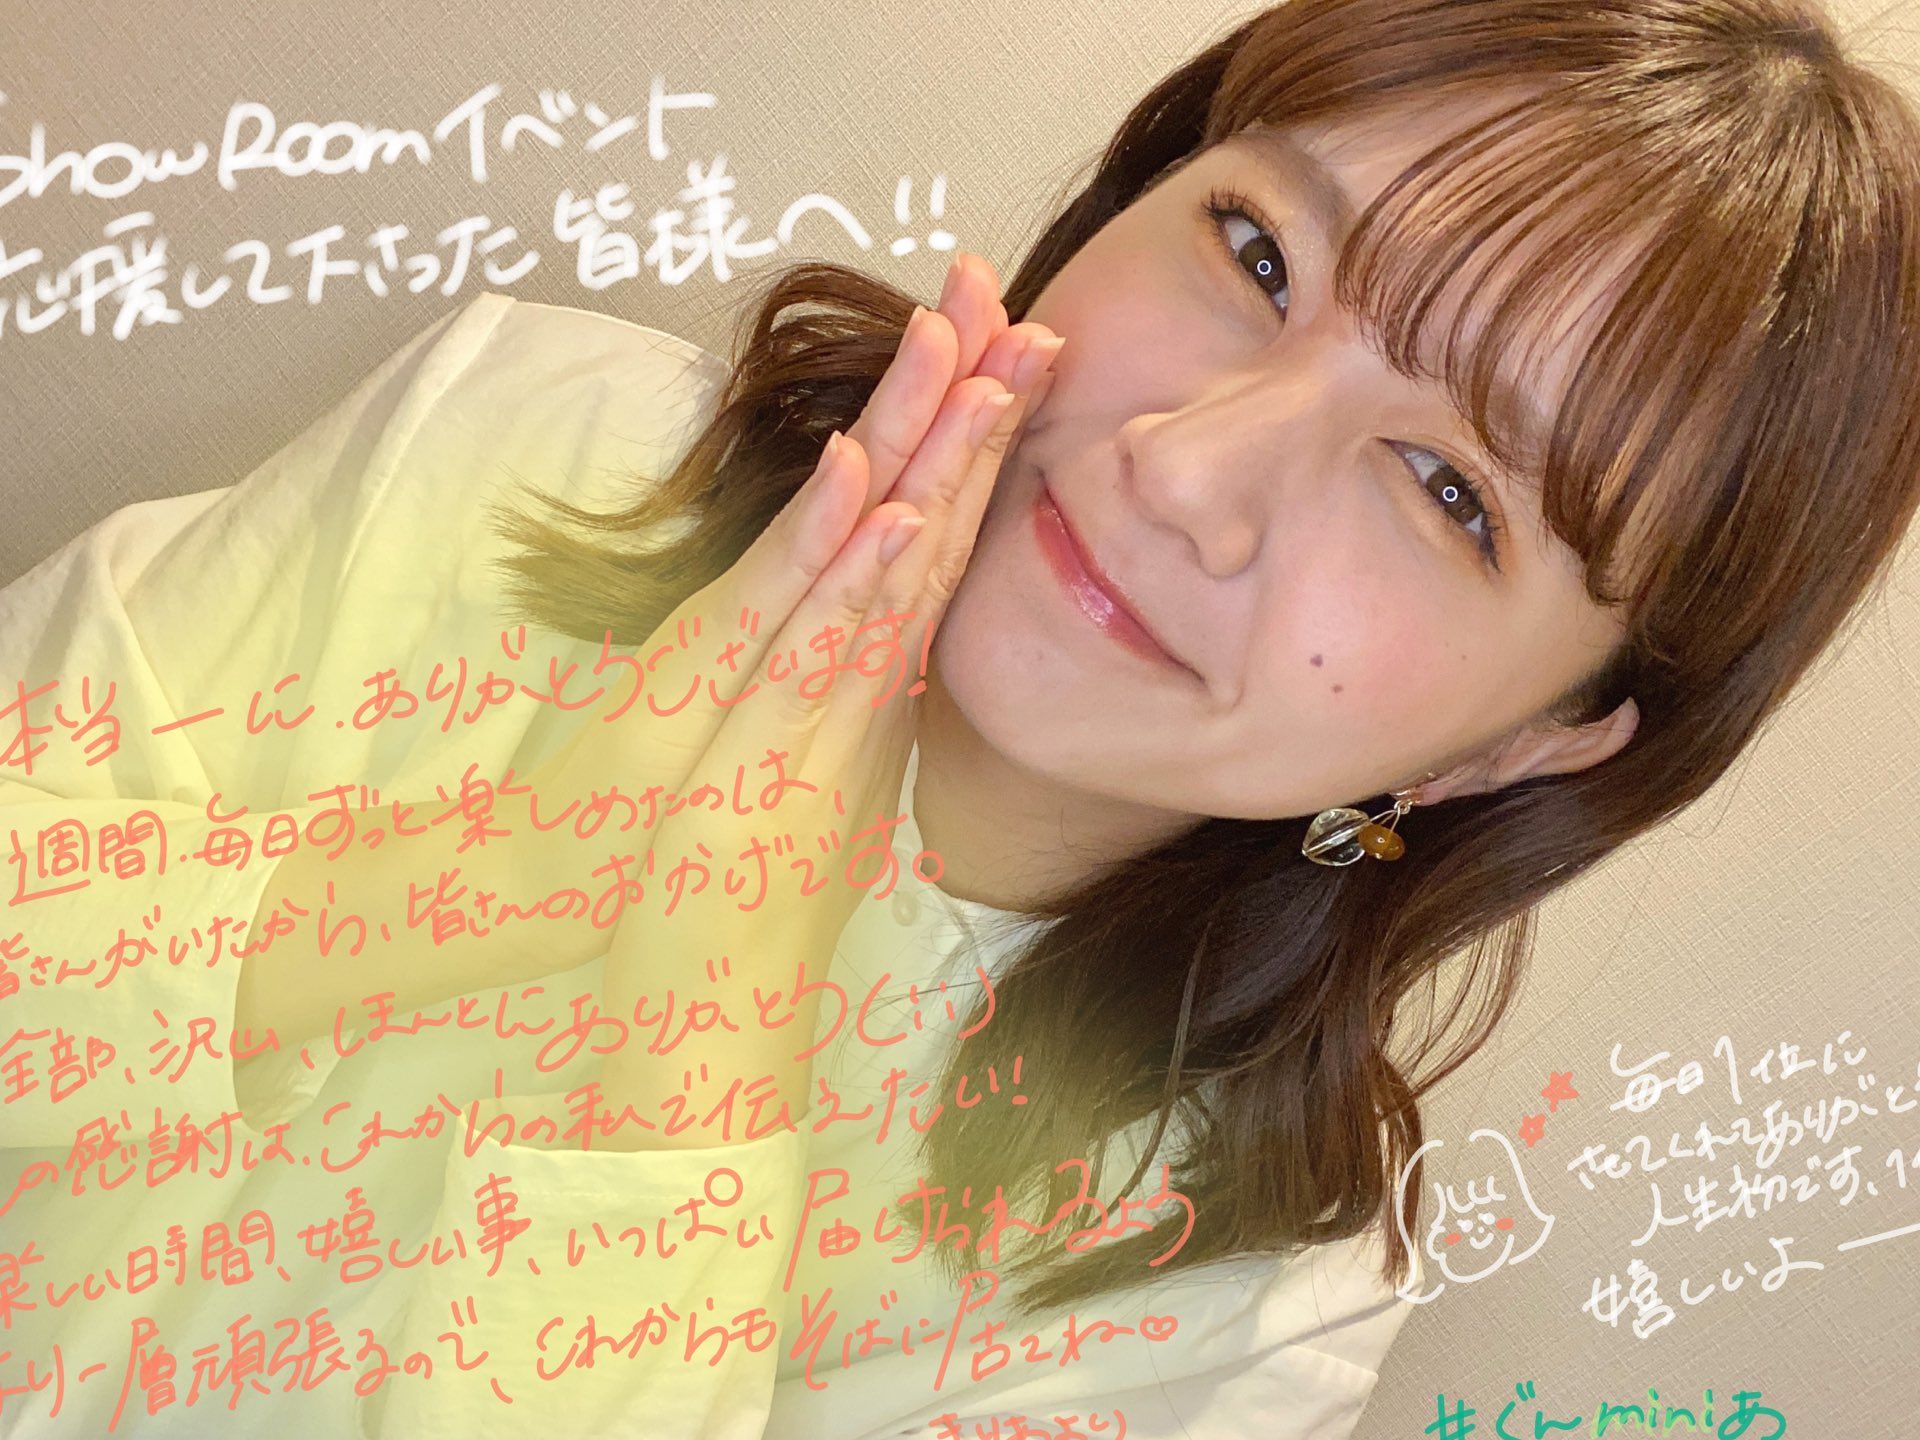 ShowRoomイベント
応援して下さった皆様へ!!
本当ーに.ありがとうございます!
週間.毎日ずっと楽しめたのは、
皆さんがいたから、皆さんのおかげです。
全部、沢山、ほんとにありがとう(;;)
の感謝は.これからの私で伝えたい!
楽しい時間、嬉しい事、いっぱい届けられるよう
より一層頑張るので、これからもそばに居てね〜♡
きりあより
毎日1位に
させてくれてありがと
人生初です、1
嬉しいよー
#ぐんminiあ